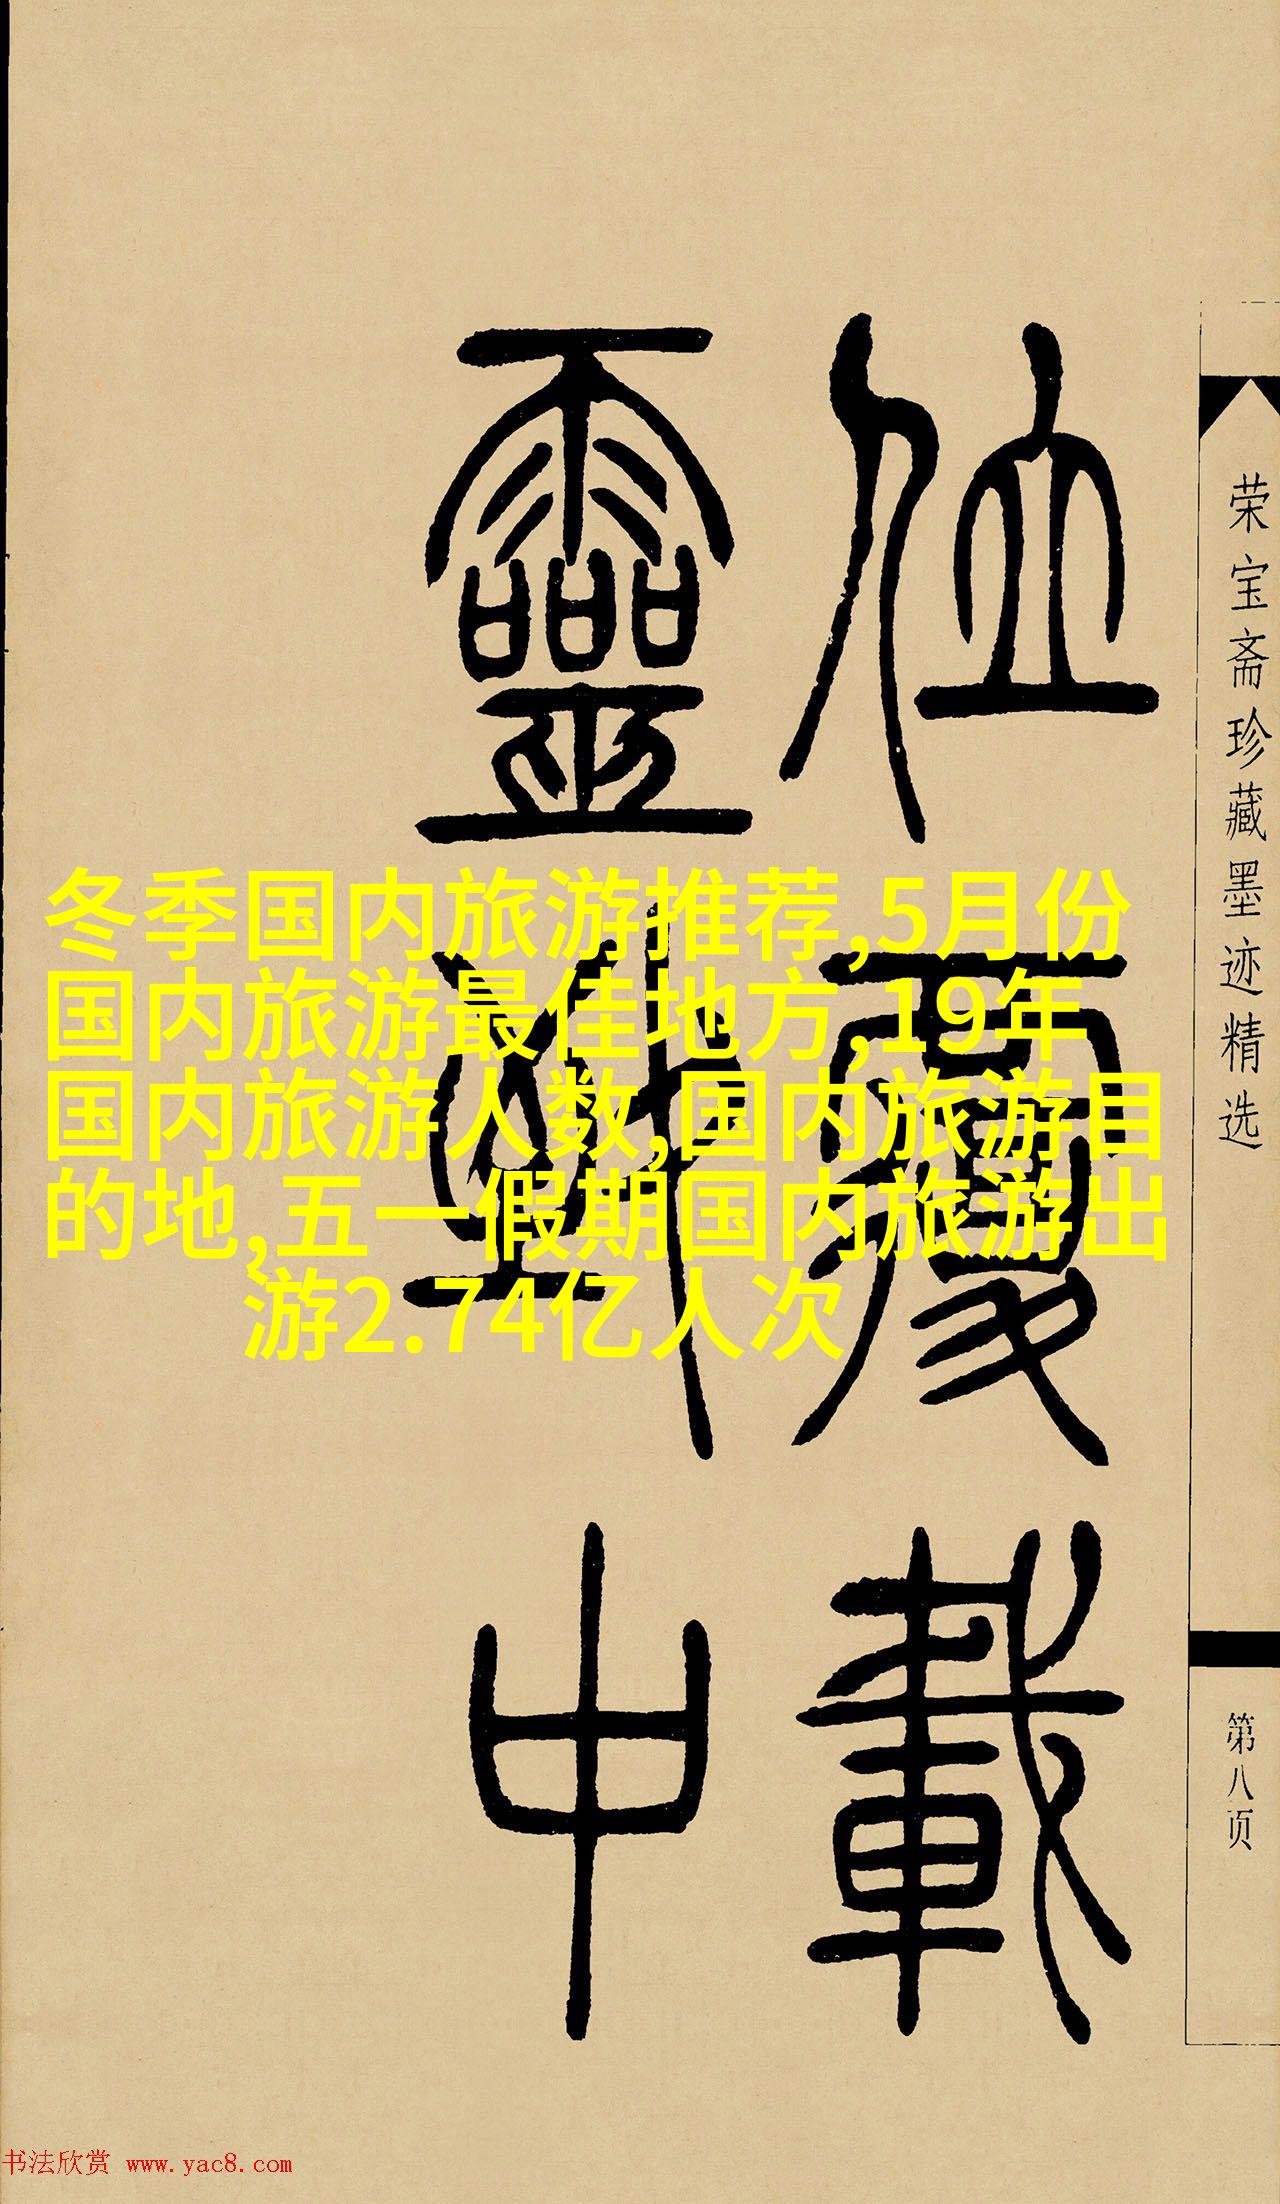 荣宝斋珍藏墨迹精选
第八页
位覆載
靈中
冬季国内旅游推荐,5月份
国内旅游最佳地方,19年
国内旅游人数,国内旅游目
的地,五一假期国内旅游出
游2.74亿人次
书法欣赏 www.yac8.com